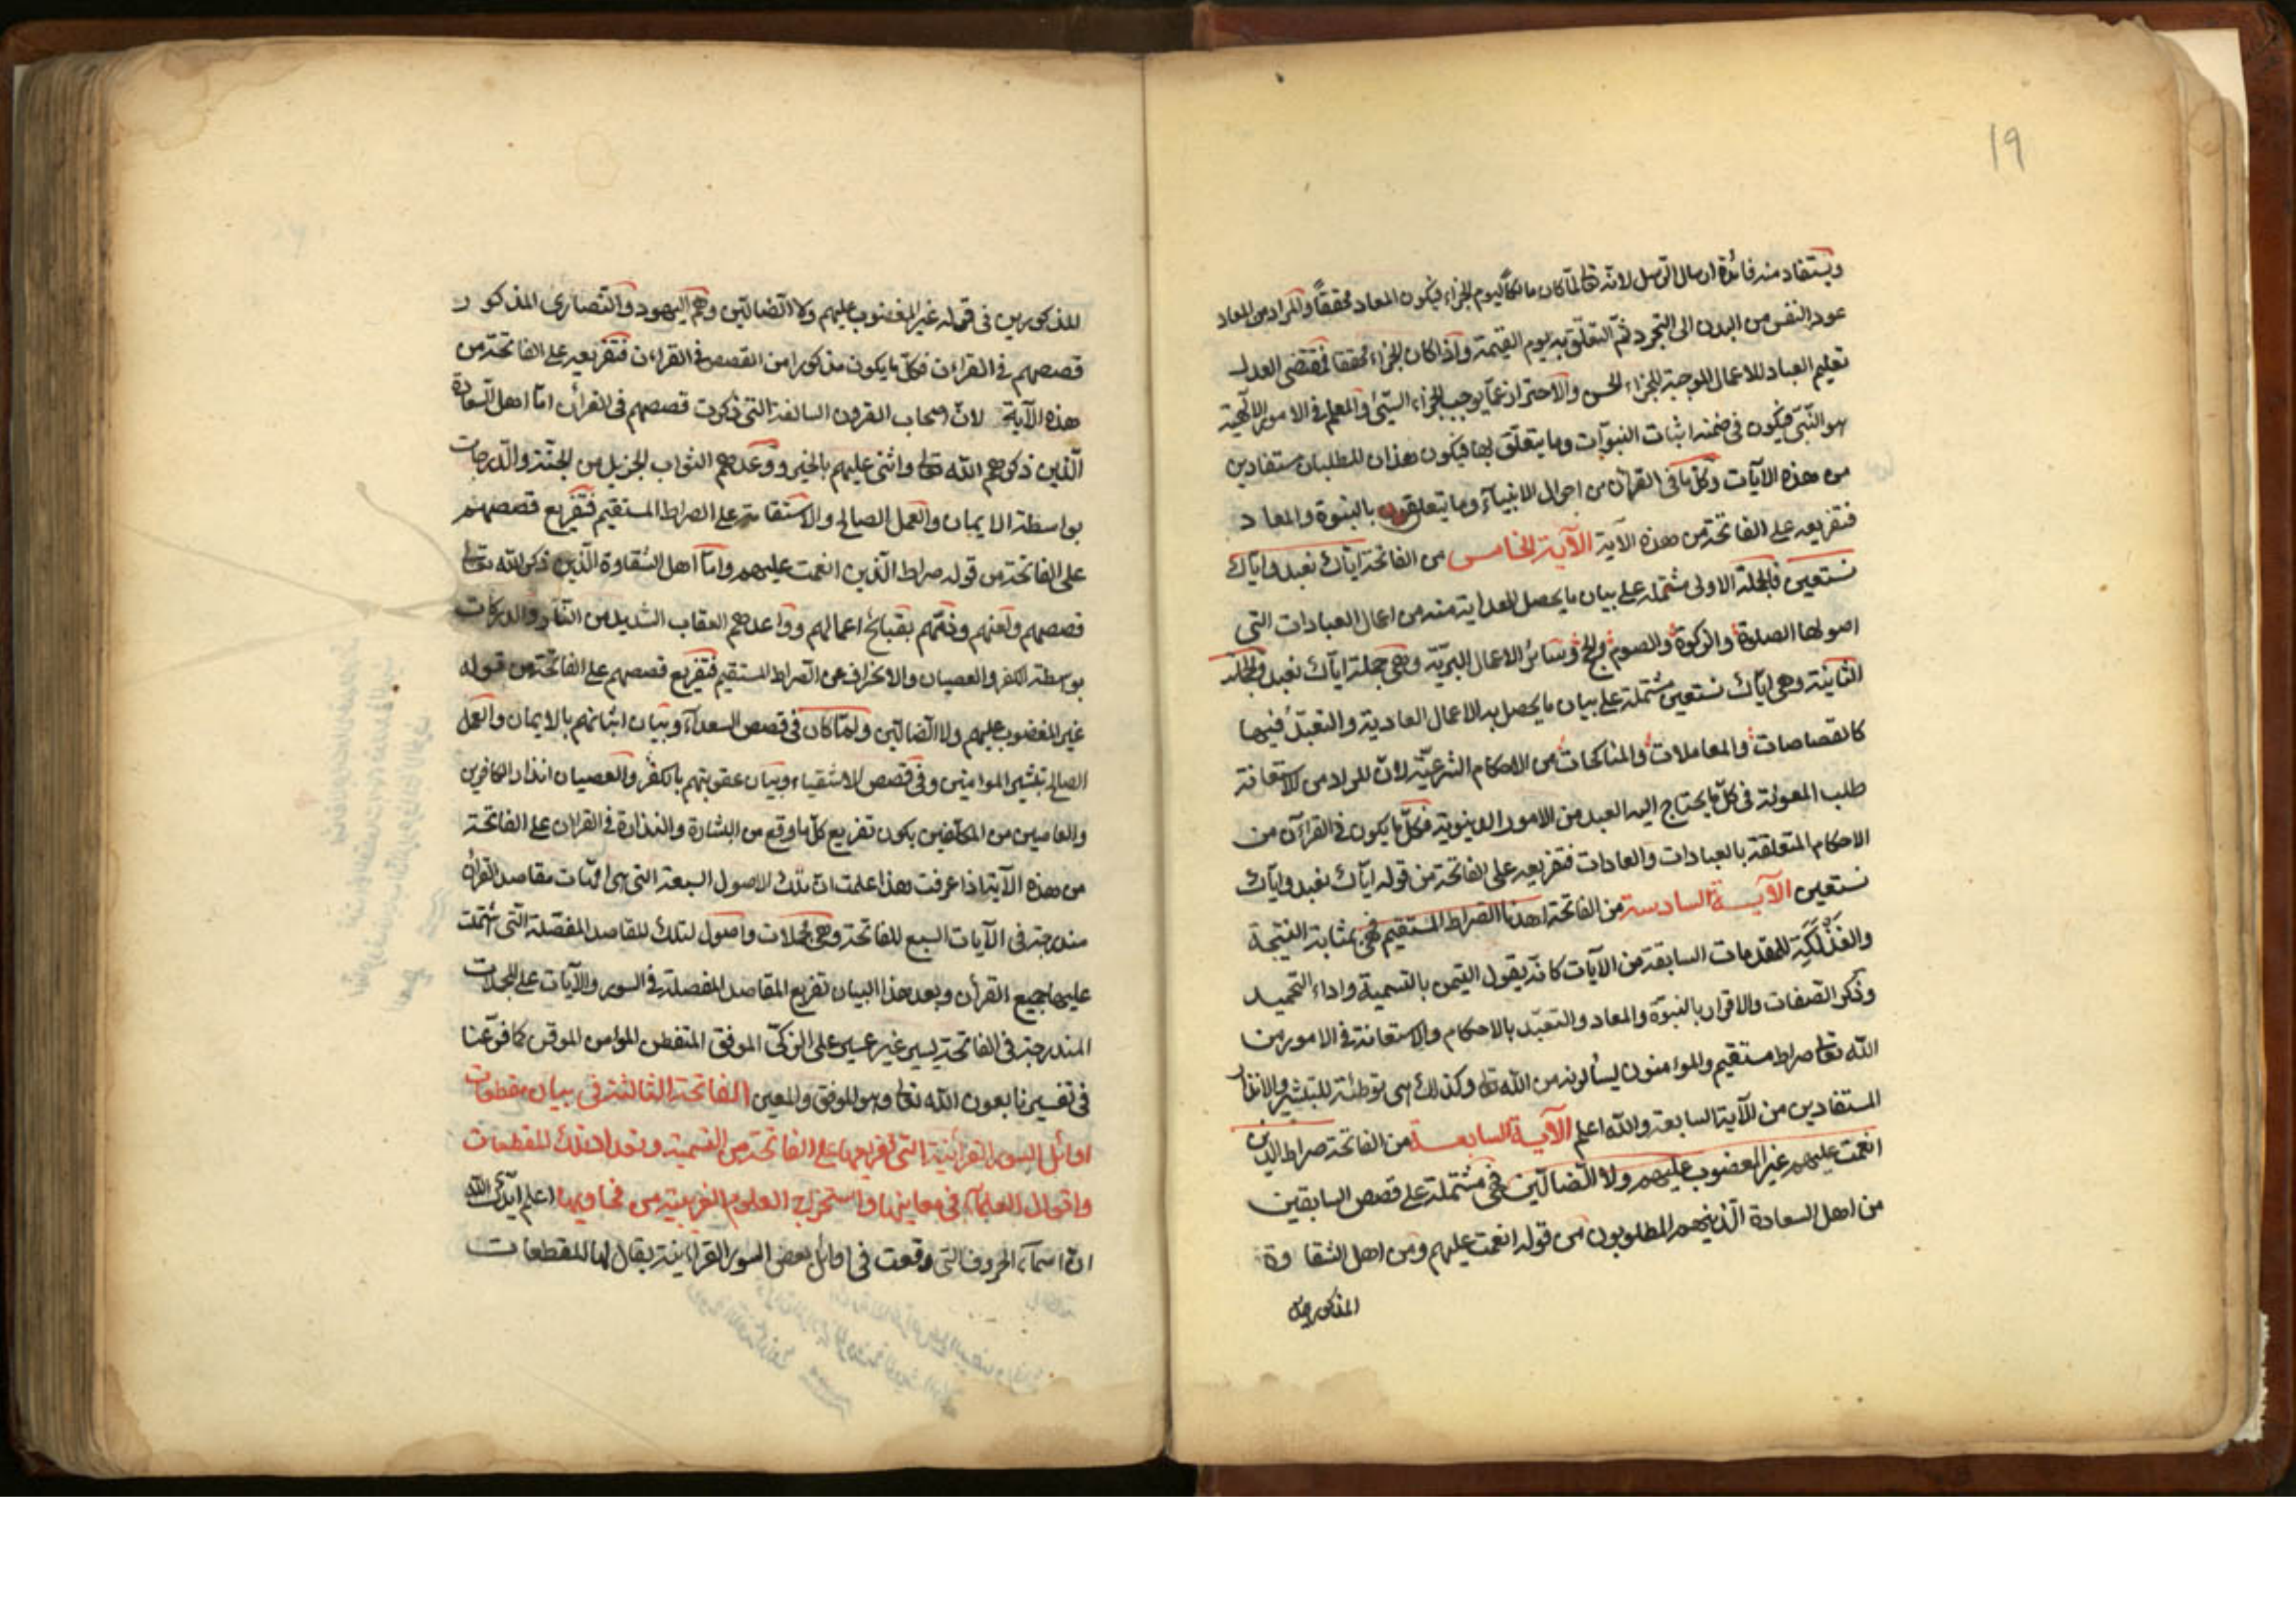 19
ويستفاد منه فائدة ارسال الرسل لانه تعالى لمّا كان مالكاً ليوم الجزاء فيكون المعاد محققاً والمراد من المعاد
عود النفس من البدن الى التجرد ثمّ التعلّق به يوم القيمة واذا كان الجزاء محققا فمقتضى العدل
تعليم العباد للاعمال الموجبة للجزاء الحسن والاحتراز عمّا يوجب الجزاء السيّئ والمعلم في الامور الالٓهية
هو النّبيّ فيكون في ضمنه اثبات النبوّات وما يتعلّق بها فيكون هذان المطلبان مستفادين
من هذه الآيات وكلّ ما في القرآن من احوال الانبيآء وما يتعلقون بالنبوة والمعاد
فتفريعه على الفاتحة من هذه الآية الآية الخامس من الفاتحة ايّاك نعبد وايّاك
نستعين فالجملة الاولى مشتملة على بيان ما يحصل الهداية منه من اعمال العبادات التي
اصولها الصلوة والزكوة والصوم والحج وسائر الاعمال البريّة وهي جملة ايّاك نعبد والجملة
الثانية وهي ايّاك نستعين مشتملة على بيان ما يحصل به الاعمال العادية والتعبّد فيها
كالقصاصات والمعاملات والمناكحات من الاحكام الشرعيّة لانّ المراد من الاستعانة
طلب المعونة في كلّ ما يحتاج اليه العبد من الامور الدينوية فكلّ ما يكون في القرآن من
الاحكام المتعلقة بالعبادات والعادات فتفريعه على الفاتحة من قوله ايّاك نعبد وايّاك
نستعين الآيــة السادسة من الفاتحة اهدنا الصراط المستقيم فهي بمثابة النتيجة
والفَذْلَكَةِ للمقدمات السابقة من الآيات كانّه يقول التيمن بالتسمية واداء التحميد
وذكر الصفات والاقرار بالنبوّة والمعاد والتعبّد بالاحكام والاستعانة في الامور من
الله تعالى صراط مستقيم والموامنون يسألونه من الله تعالى وكذلك هي توطئة للتبشير والانذار
المستفادين من الآية السابعة والله اعلم الآيــة السابعــة من الفاتحة صراط الذين
انعمت عليهم غير المغضوب عليهم ولا الضالّين فهي مشتملة على قصص السابقين
من اهل السعادة الّذينهم المطلوبون من قوله انعمت عليهم ومن اهل الشقاوة
المذكورين
المذكورين في قوله غير المغضوب عليهم ولا الضالّين وهم اليهود والنّصارى المذكور
قصصهم في القراءن فكلّ ما يكون مذكورا من القصص في القراءن فتفريعه على الفاتحة من
هذه الآية لانّ اصحاب القرون السالفة التي ذكرت قصصهم في القرأن امّا اهل السّعادة
الّذين ذكرهم الله تعالى واثنى عليهم بالخير ووعدهم الثواب الجزيل من الجنّة والدّرجات
بواسطة الايمان والعمل الصالح والاستقامة على الصراط المستقيم فتفريع قصصهم
على الفاتحة من قوله صراط الّذين انعمت عليهم وامّا اهل الشقاوة الّذين ذكر الله تعالى
قصصهم ولعنهم وذمّهم بقبائح اعمالهم وواعدهم العقاب الشديد من النّار والدركات
بوسطة الكفر والعصيان والانحراف عن الصّراط المستقيم فتفريع قصصهم على الفاتحة من قوله
غير المغضوب عليهم ولا الضالّين ولمّا كان في قصص السعدآء وبيان اتيانهم بالايمان والعمل
الصالح تبشير الموامنين وفي قصص الاشقياء وبيان عقوبتهم بالكفر والعصيان انذار الكافرين
والعاصين من المكلّفين يكون تفريع كلّ ما وقع من البشارة والنذارة في القران على الفاتحة
من هذه الآية اذا عرفت هذا علمت انّ تلك الاصول السبعة التي هي امّهات مقاصد القرأن
مندرجة في الآيات السبع للفاتحة وهي مجملات واصول لتلك المقاصد المفصّلة الّتي شتملت
عليها جميع القرأن وبعد هذا البيان تفريع المقاصد المفصلة في السور والآيات على المجملات
المندرجة في الفاتحة يسير غير عسير على الزكّي الموفّق المتفطن الموامن الموقن كما فرّعنا
في تفسيرنا بعون الله تعالى وهو الموفق والمعين الفاتحة الثالثة في بيان مقطعات
اوائل السور القرأنيّة التي تفريعها على الفاتحة من التسمية وتعداد تلك المقطعات
واقوال العلمآء في معاينها واستخراج العلوم الغريبة من فحاويها اعلم ايّدك الله
انّ اسمآء الحروف التي وقعت في اوائل بعض السور القراءنية يقال لها المقطعات